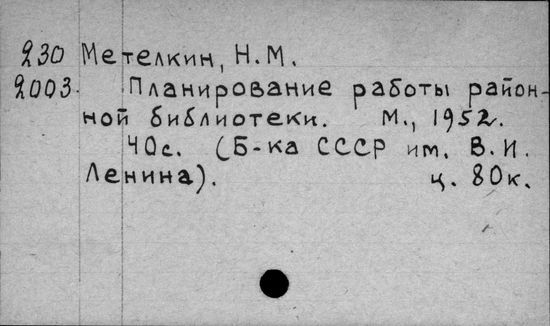 230 Метелкин, Н.М.
2003. Планирование работы район-
ной библиотеки. М., 1952.
40с. (Б-ка СССР им. В.И.
Ленина). ц. 80к.